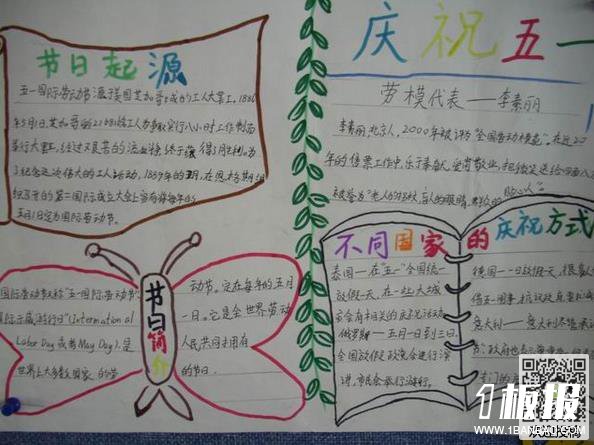 节日起源
五一国际劳动节源于美国芝加哥城的工人大罢工。1886
年5月1日,芝加哥的21.6万余名工人为争取实行八小时工作制而
举行大罢工,经过艰苦的流血牺牲,终于获得了胜利。为
了纪念这次伟大的工人运动,1889年的7月,在恩格斯组
织召开的第二国际成立大会上宣布将每年的
五月1日定为国际劳动节。
庆祝五一
劳模代表——李素丽
李素丽,北京人,2000年被评为"全国劳动模范"。在近20
年的售票工作中,
被誉为"老人的拐杖,盲人的眼睛,
贴心人"。
不同国家的庆祝方式
泰国——在"五一"全国统一
放假一天,在一些大城
市会有相关的庆祝活动
俄罗斯——五月一日到三日,
全国放假,政党会进行演
讲,市民会举行游行。
德国——一日放假一天,很
意大利——意大利不
节,政府也
节日简介
国际劳动节又称"五一国际劳动节"、
国际示威游行日"(International
Labor Day或者May Day),是
世界上大多数国家的劳
动节。定在每年的五月
一日。它是全世界劳动
人民共同拥有
的节日.
板报
WWW.1BANBAO.COM